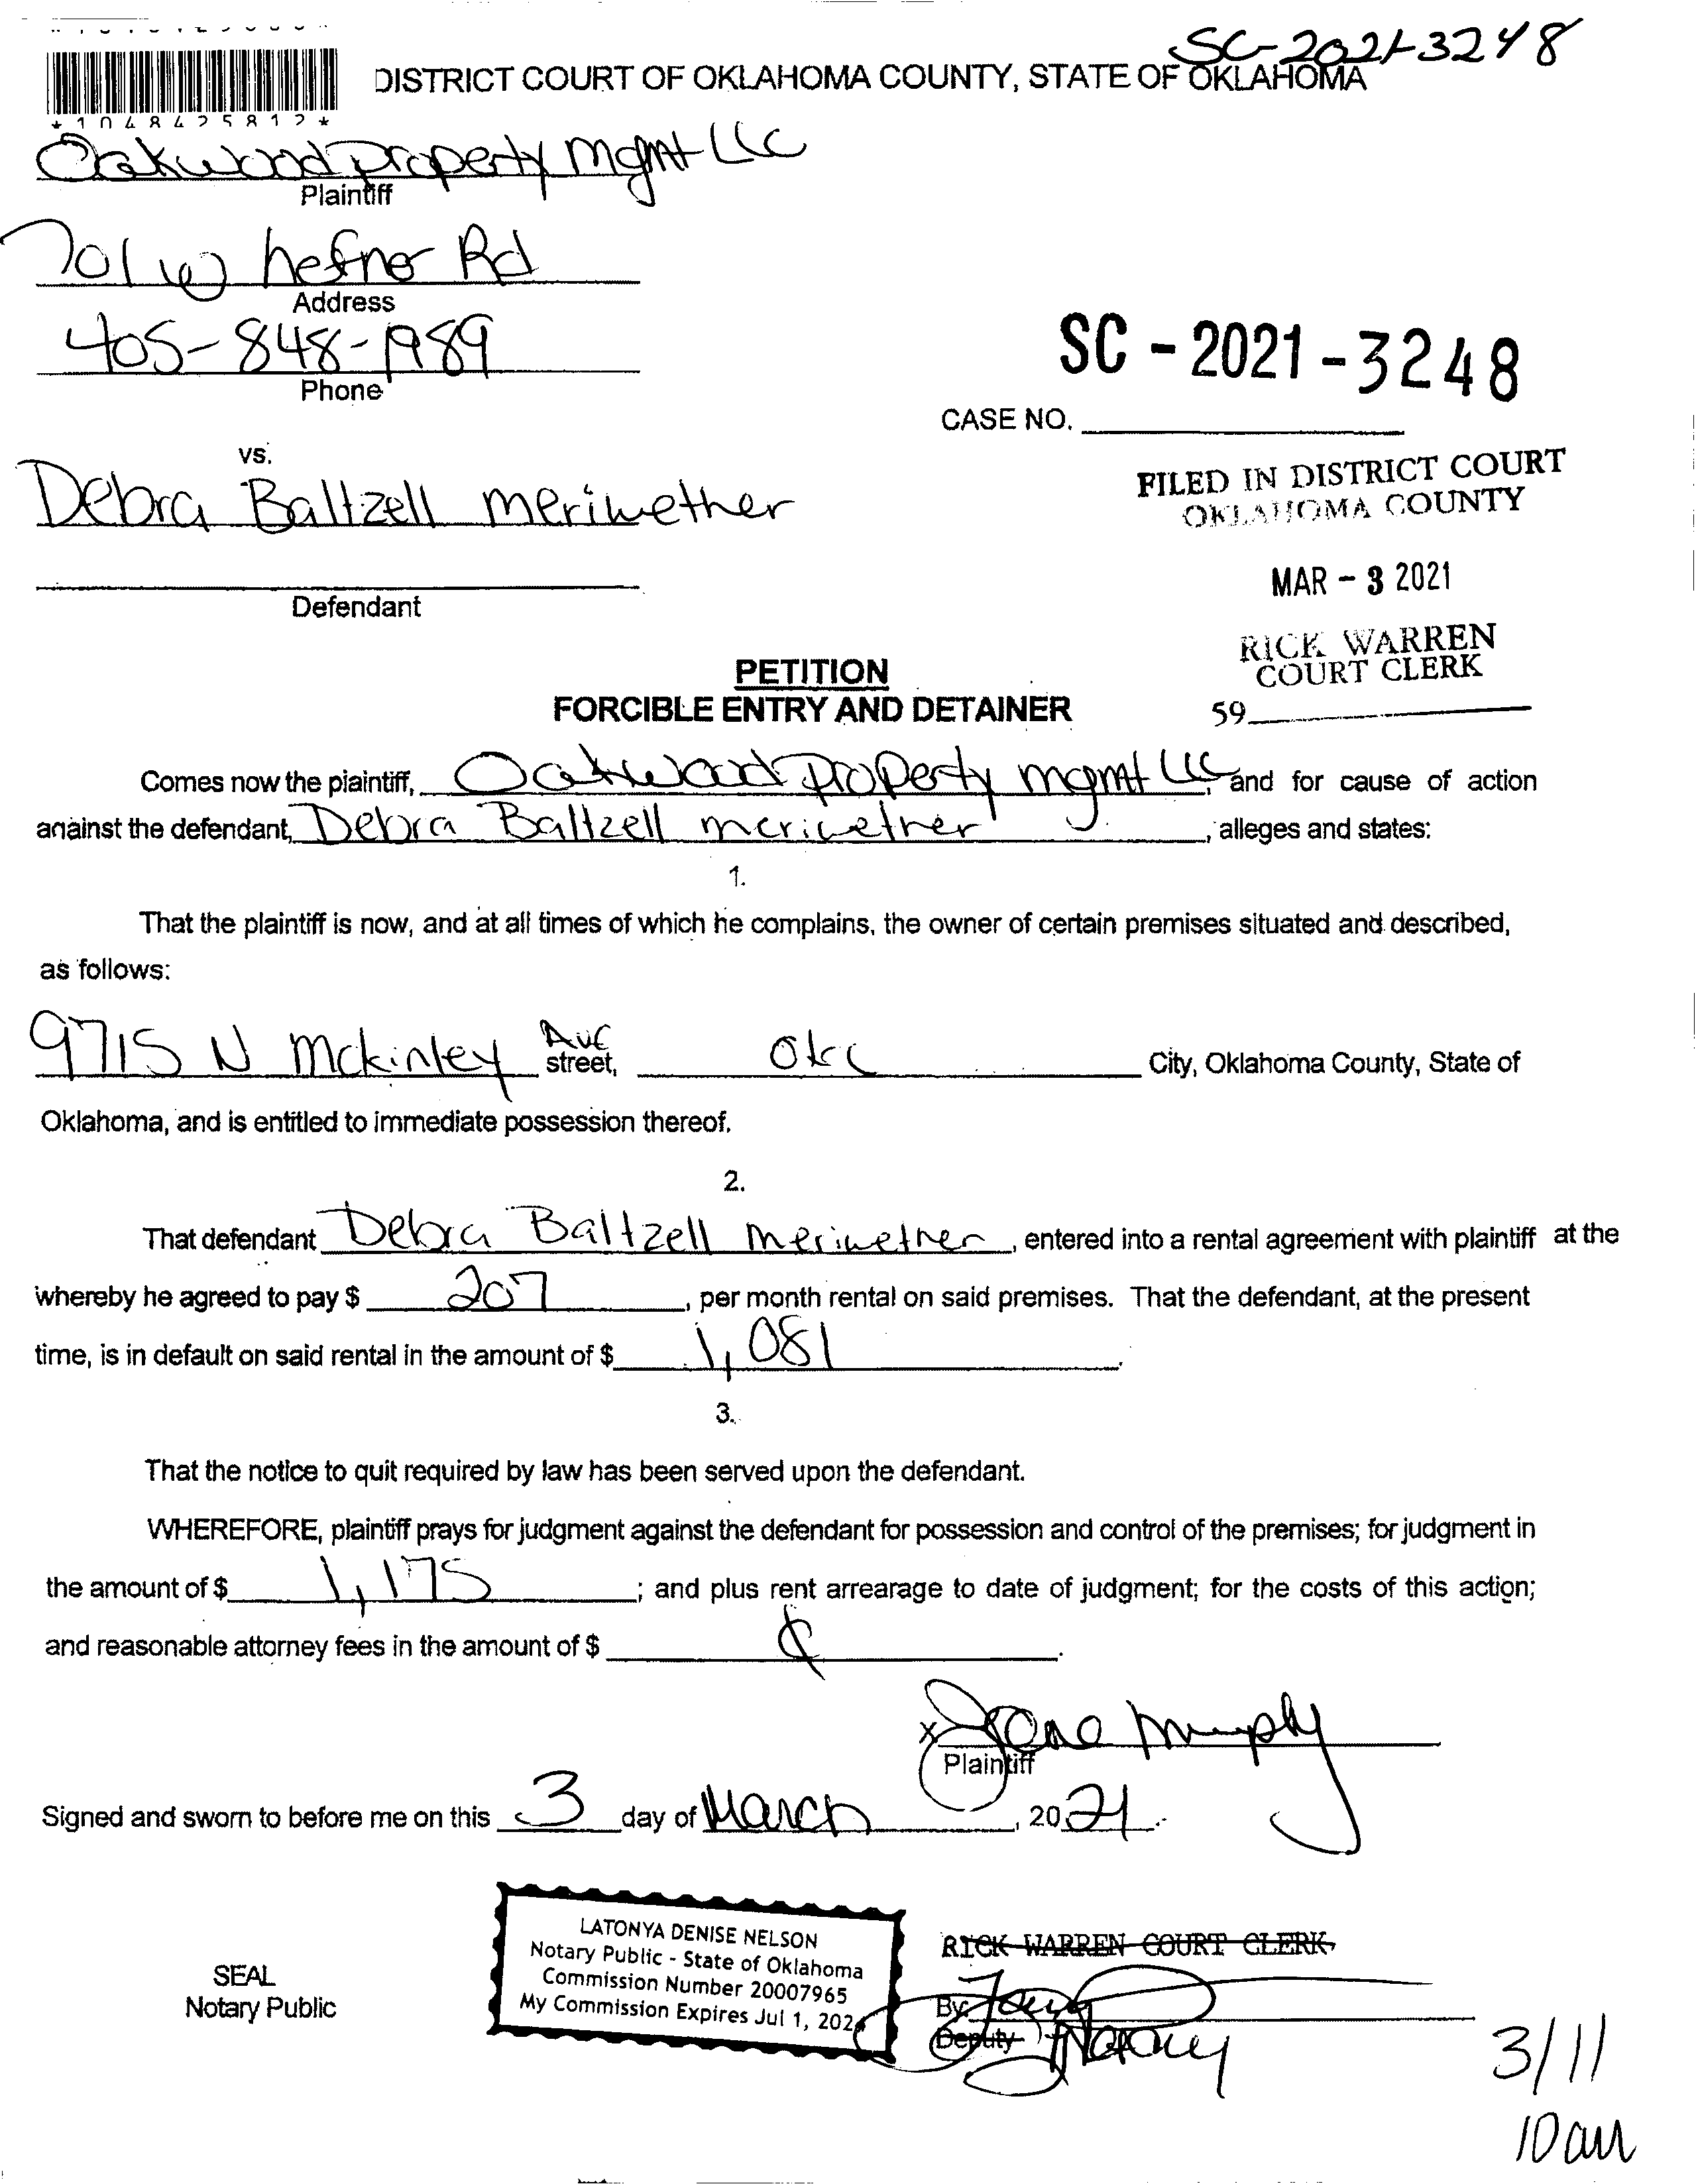 SC-2021-3248
DISTRICT COURT OF OKLAHOMA COUNTY, STATE OF OKLAHOMA
*1048425812*
Oakwood property mgmt LLC
Plaintiff
701 W hefner Rd
Address
405-848-1989
Phone
SC - 2021 - 3248
CASE NO.
vs.
Debra Baltzell meriwether
Defendant
FILED IN DISTRICT COURT
OKLAHOMA COUNTY
MAR - 3 2021
RICK WARREN
COURT CLERK
59
PETITION
FORCIBLE ENTRY AND DETAINER
Comes now the plaintiff, Oakwood property mgmt LLC, and for cause of action
against the defendant, Debra Baltzell meriwether, alleges and states:
1.
That the plaintiff is now, and at all times of which he complains, the owner of certain premises situated and described,
as follows:
9715 N Mckinley Ave street, Okc City, Oklahoma County, State of
Oklahoma, and is entitled to immediate possession thereof.
2.
That defendant Debra Baltzell meriwether, entered into a rental agreement with plaintiff at the
whereby he agreed to pay $ 207, per month rental on said premises. That the defendant, at the present
time, is in default on said rental in the amount of $ 1,081.
3.
That the notice to quit required by law has been served upon the defendant.
WHEREFORE, plaintiff prays for judgment against the defendant for possession and control of the premises; for judgment in
the amount of $ 1,175; and plus rent arrearage to date of judgment; for the costs of this action;
and reasonable attorney fees in the amount of $
x
Murphy
Plaintiff
Signed and sworn to before me on this 3 day of March, 2021.
LATONYA DENISE NELSON
Notary Public - State of Oklahoma
Commission Number 20007965
My Commission Expires Jul 1, 202
SEAL
Notary Public
RICK WARREN COURT CLERK
By:
Deputy Notary
3/11
10 am